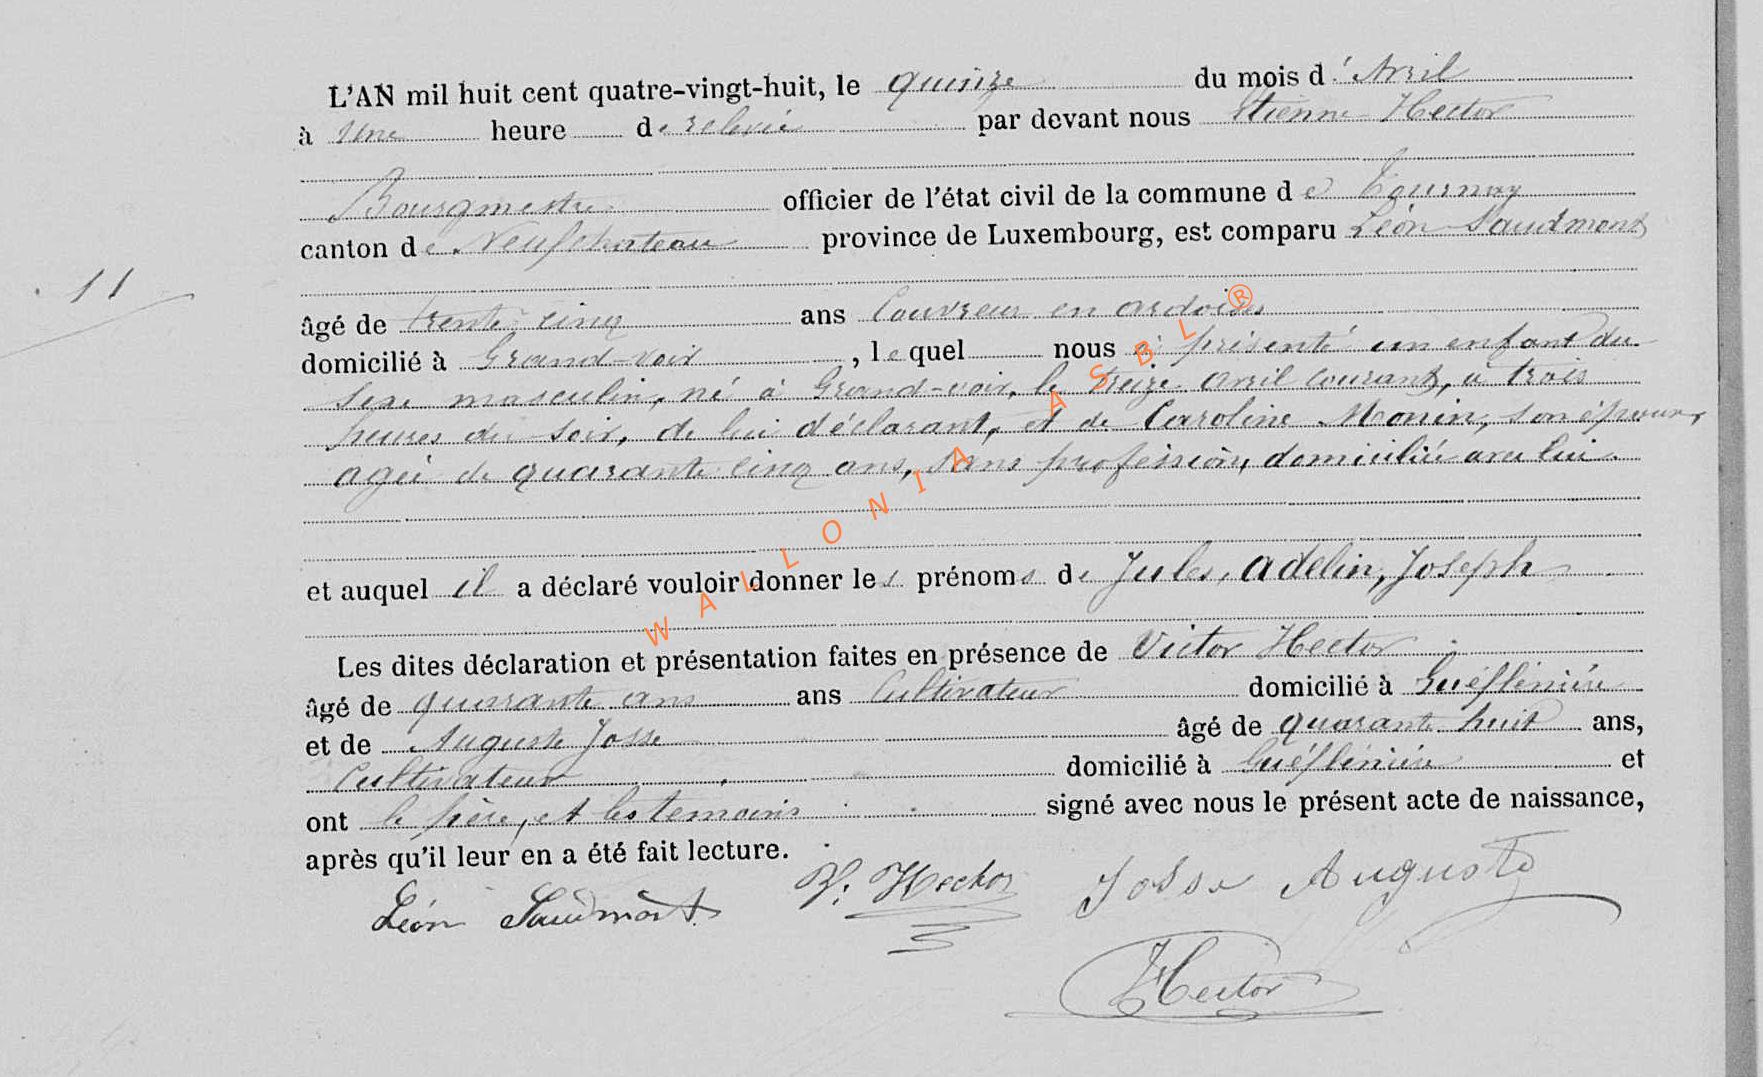 L'AN mil huit cent quatre-vingt-huit, le quinze du mois d'Avril
à une heure de relevée par devant nous Etienne Hector
Bourgmestre officier de l'état civil de la commune de Tournay
canton de Neufchateau province de Luxembourg, est comparu Léon Saudmont
11
âgé de trente cinq ans Couvreur en ardoises
domicilié à Grand-voir, lequel nous a présenté un enfant du
sexe masculin, né à Grand-voir, le treize avril courant, à trois
heures du soir, de lui déclarant, et de Caroline Monin, son épouse,
agée de quarante cinq ans, sans profession, domiciliée avec lui.
et auquel il a déclaré vouloir donner les prénoms de Jules, Adelin, Joseph
Les dites déclaration et présentation faites en présence de Victor Hector
âgé de quarante ans ans Cultivateur domicilié à
et de Auguste Josse âgé de quarante huit ans,
Cultivateur domicilié à et
ont le père, et les temoins signé avec nous le présent acte de naissance,
après qu'il leur en a été fait lecture.
Léon Saudmont V. Hector Josse Auguste
Hector
WALLONIA ASBL ®